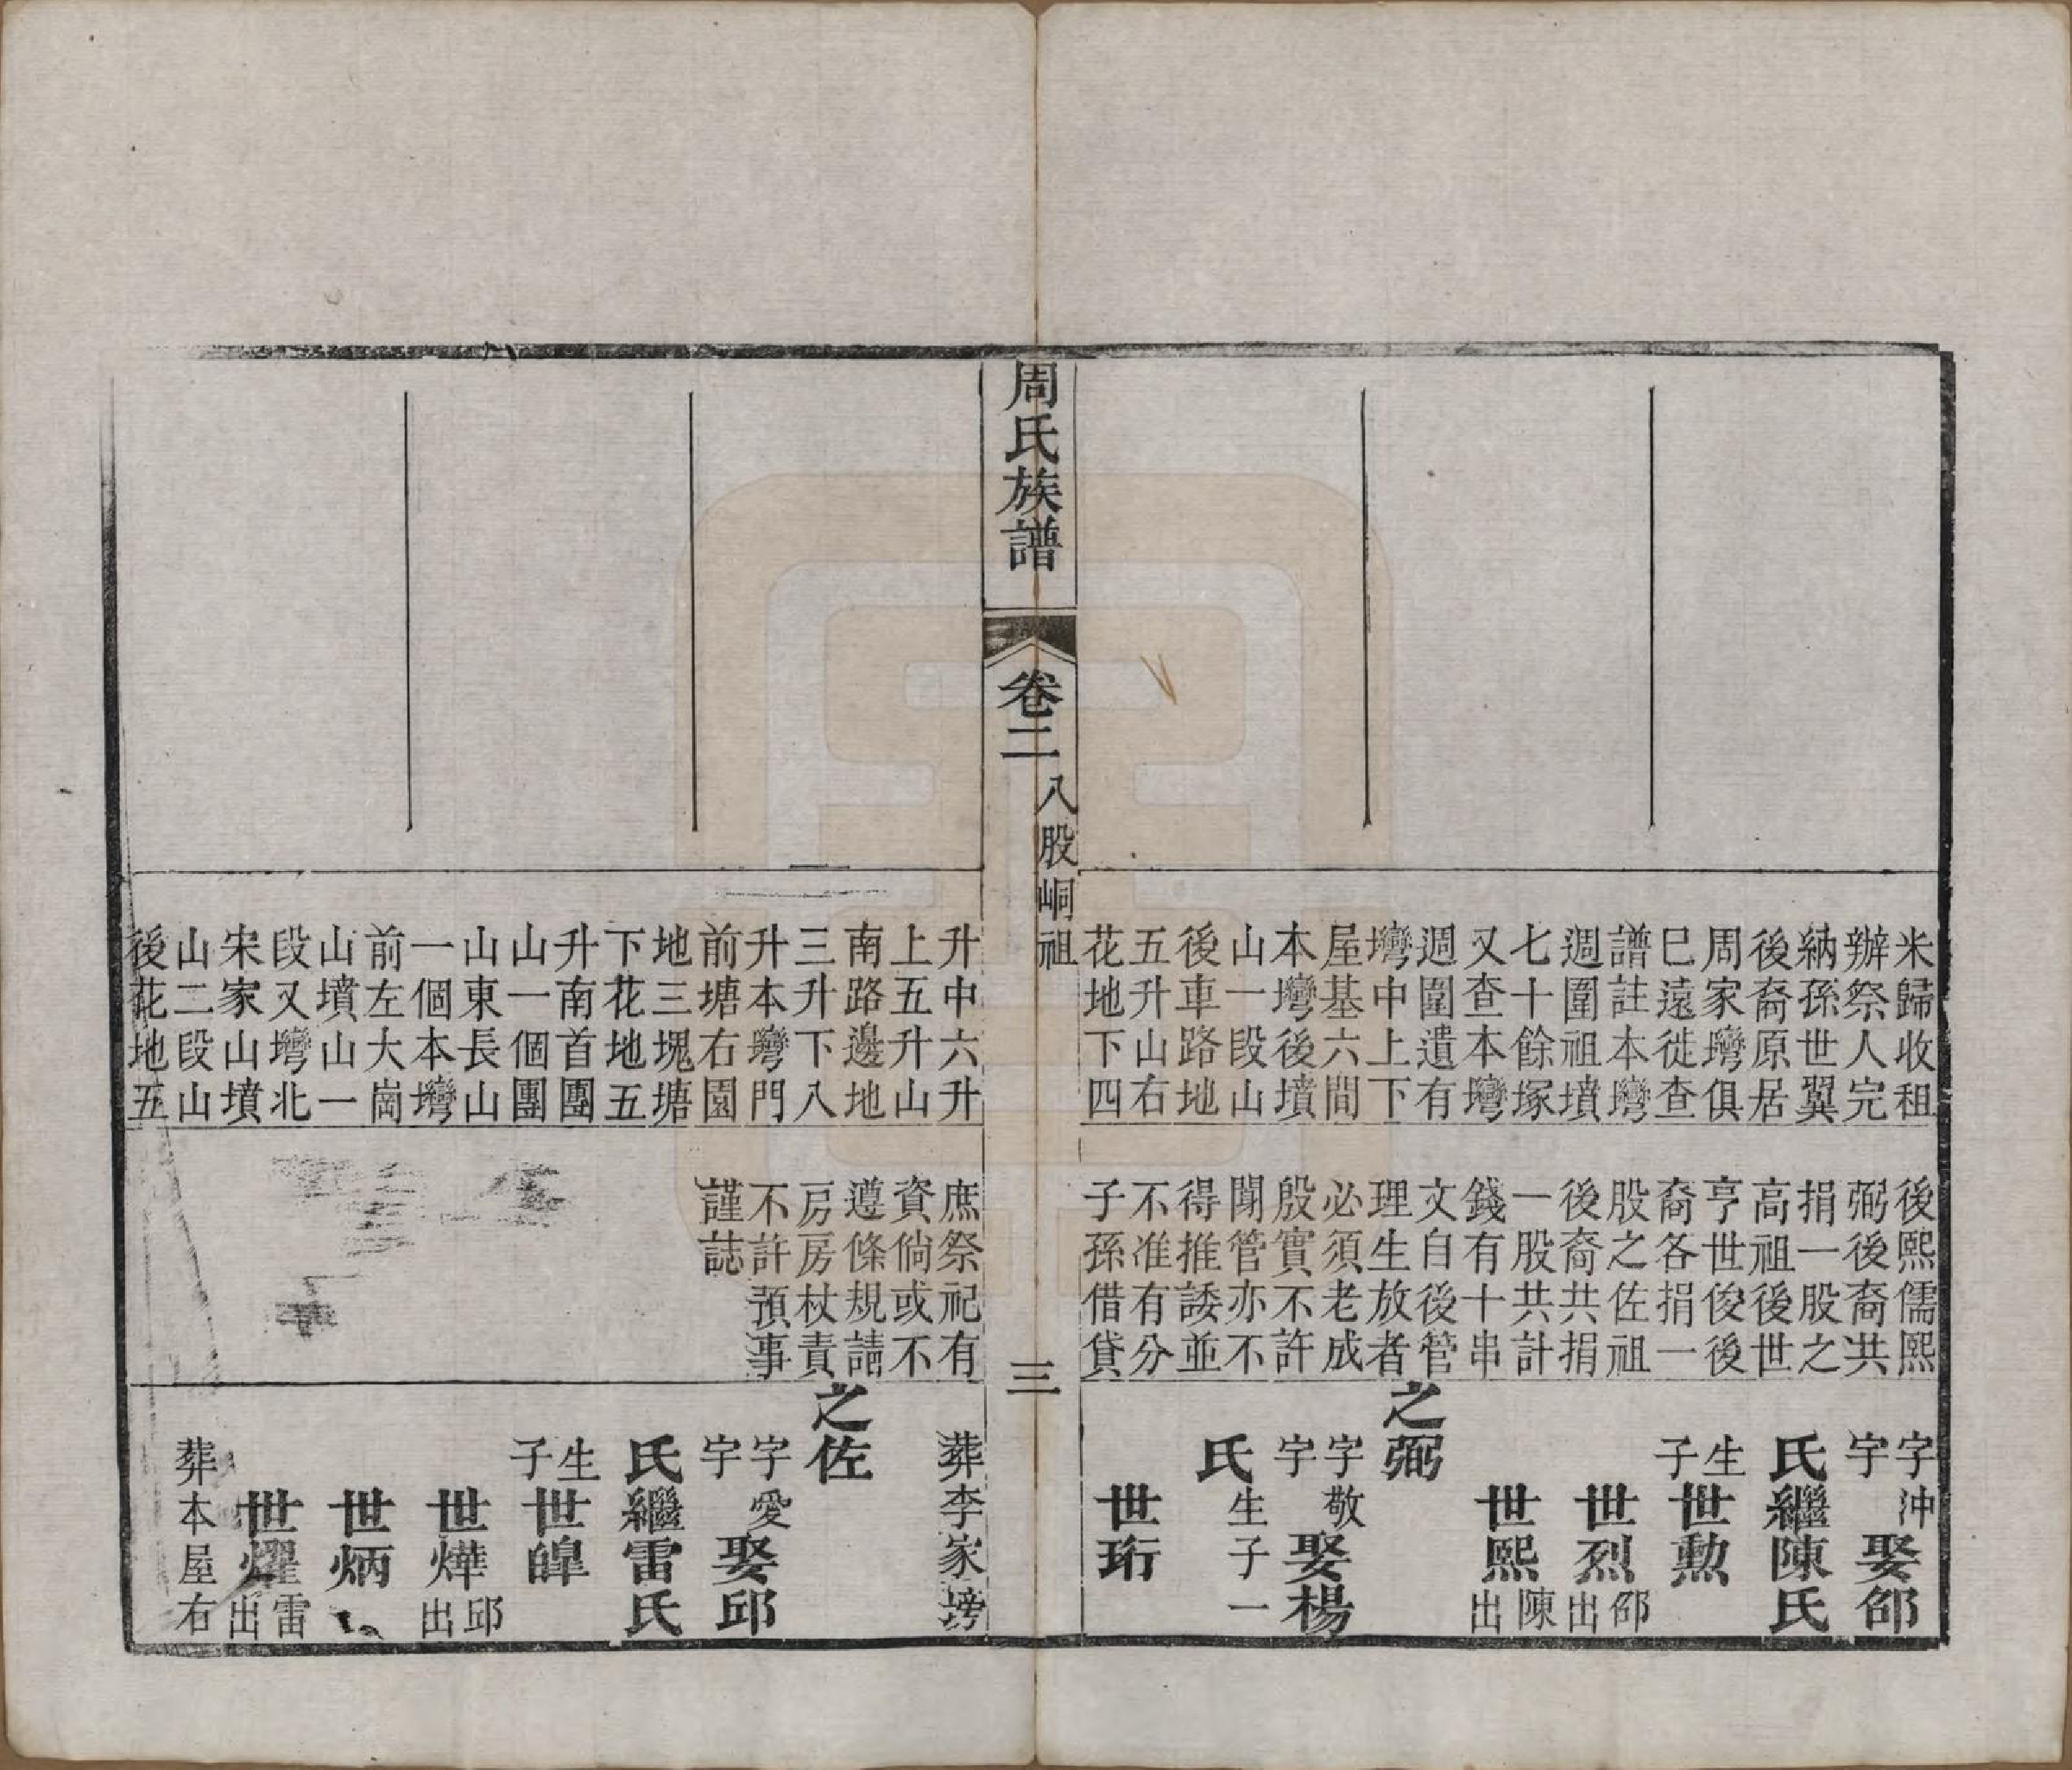 米歸收租
辦祭人完
納孫世翼
後裔原居
周家塆俱
巳遠徙查
譜註本塆
週圍祖墳
七十餘塚
又查本塆
週圍遺有
塆中上下
屋基六間
本塆後墳
山一段山
後車路地
五升山右
花地下四
後熙儒熙
弼後裔共
捐一股之
高祖後世
亨世俊後
裔各捐一
股之佐祖
後裔共捐
一股共計
錢有十串
文自後管
理生放者
必須老成
殷實不許
闖管亦不
得推諉並
不准有分
子孫借貸
字沖
字
娶邰
氏繼陳氏
生
子
世勲
世烈
邰
出
世熙
陳
出
之弼
字敬
字
娶楊
氏
生子一
世珩
周氏族譜
卷二
八股峒祖
三
升中六升
上五升山
南路邊地
三升下八
升本塆門
前塘右園
地三塊塘
下花地五
升南首團
山一個團
山東長山
一個本塆
前左大崗
山墳山一
段又塆北
宋家山墳
山二段山
後花地五
庶祭祀有
資倘或不
遵條規請
房房杖責
不許預事
謹誌
葬李家塝
之佐
字愛
字
娶邱
氏繼雷氏
生
子
世皥
世燁
邱
出
世炳
世燿
雷
出
葬本屋右